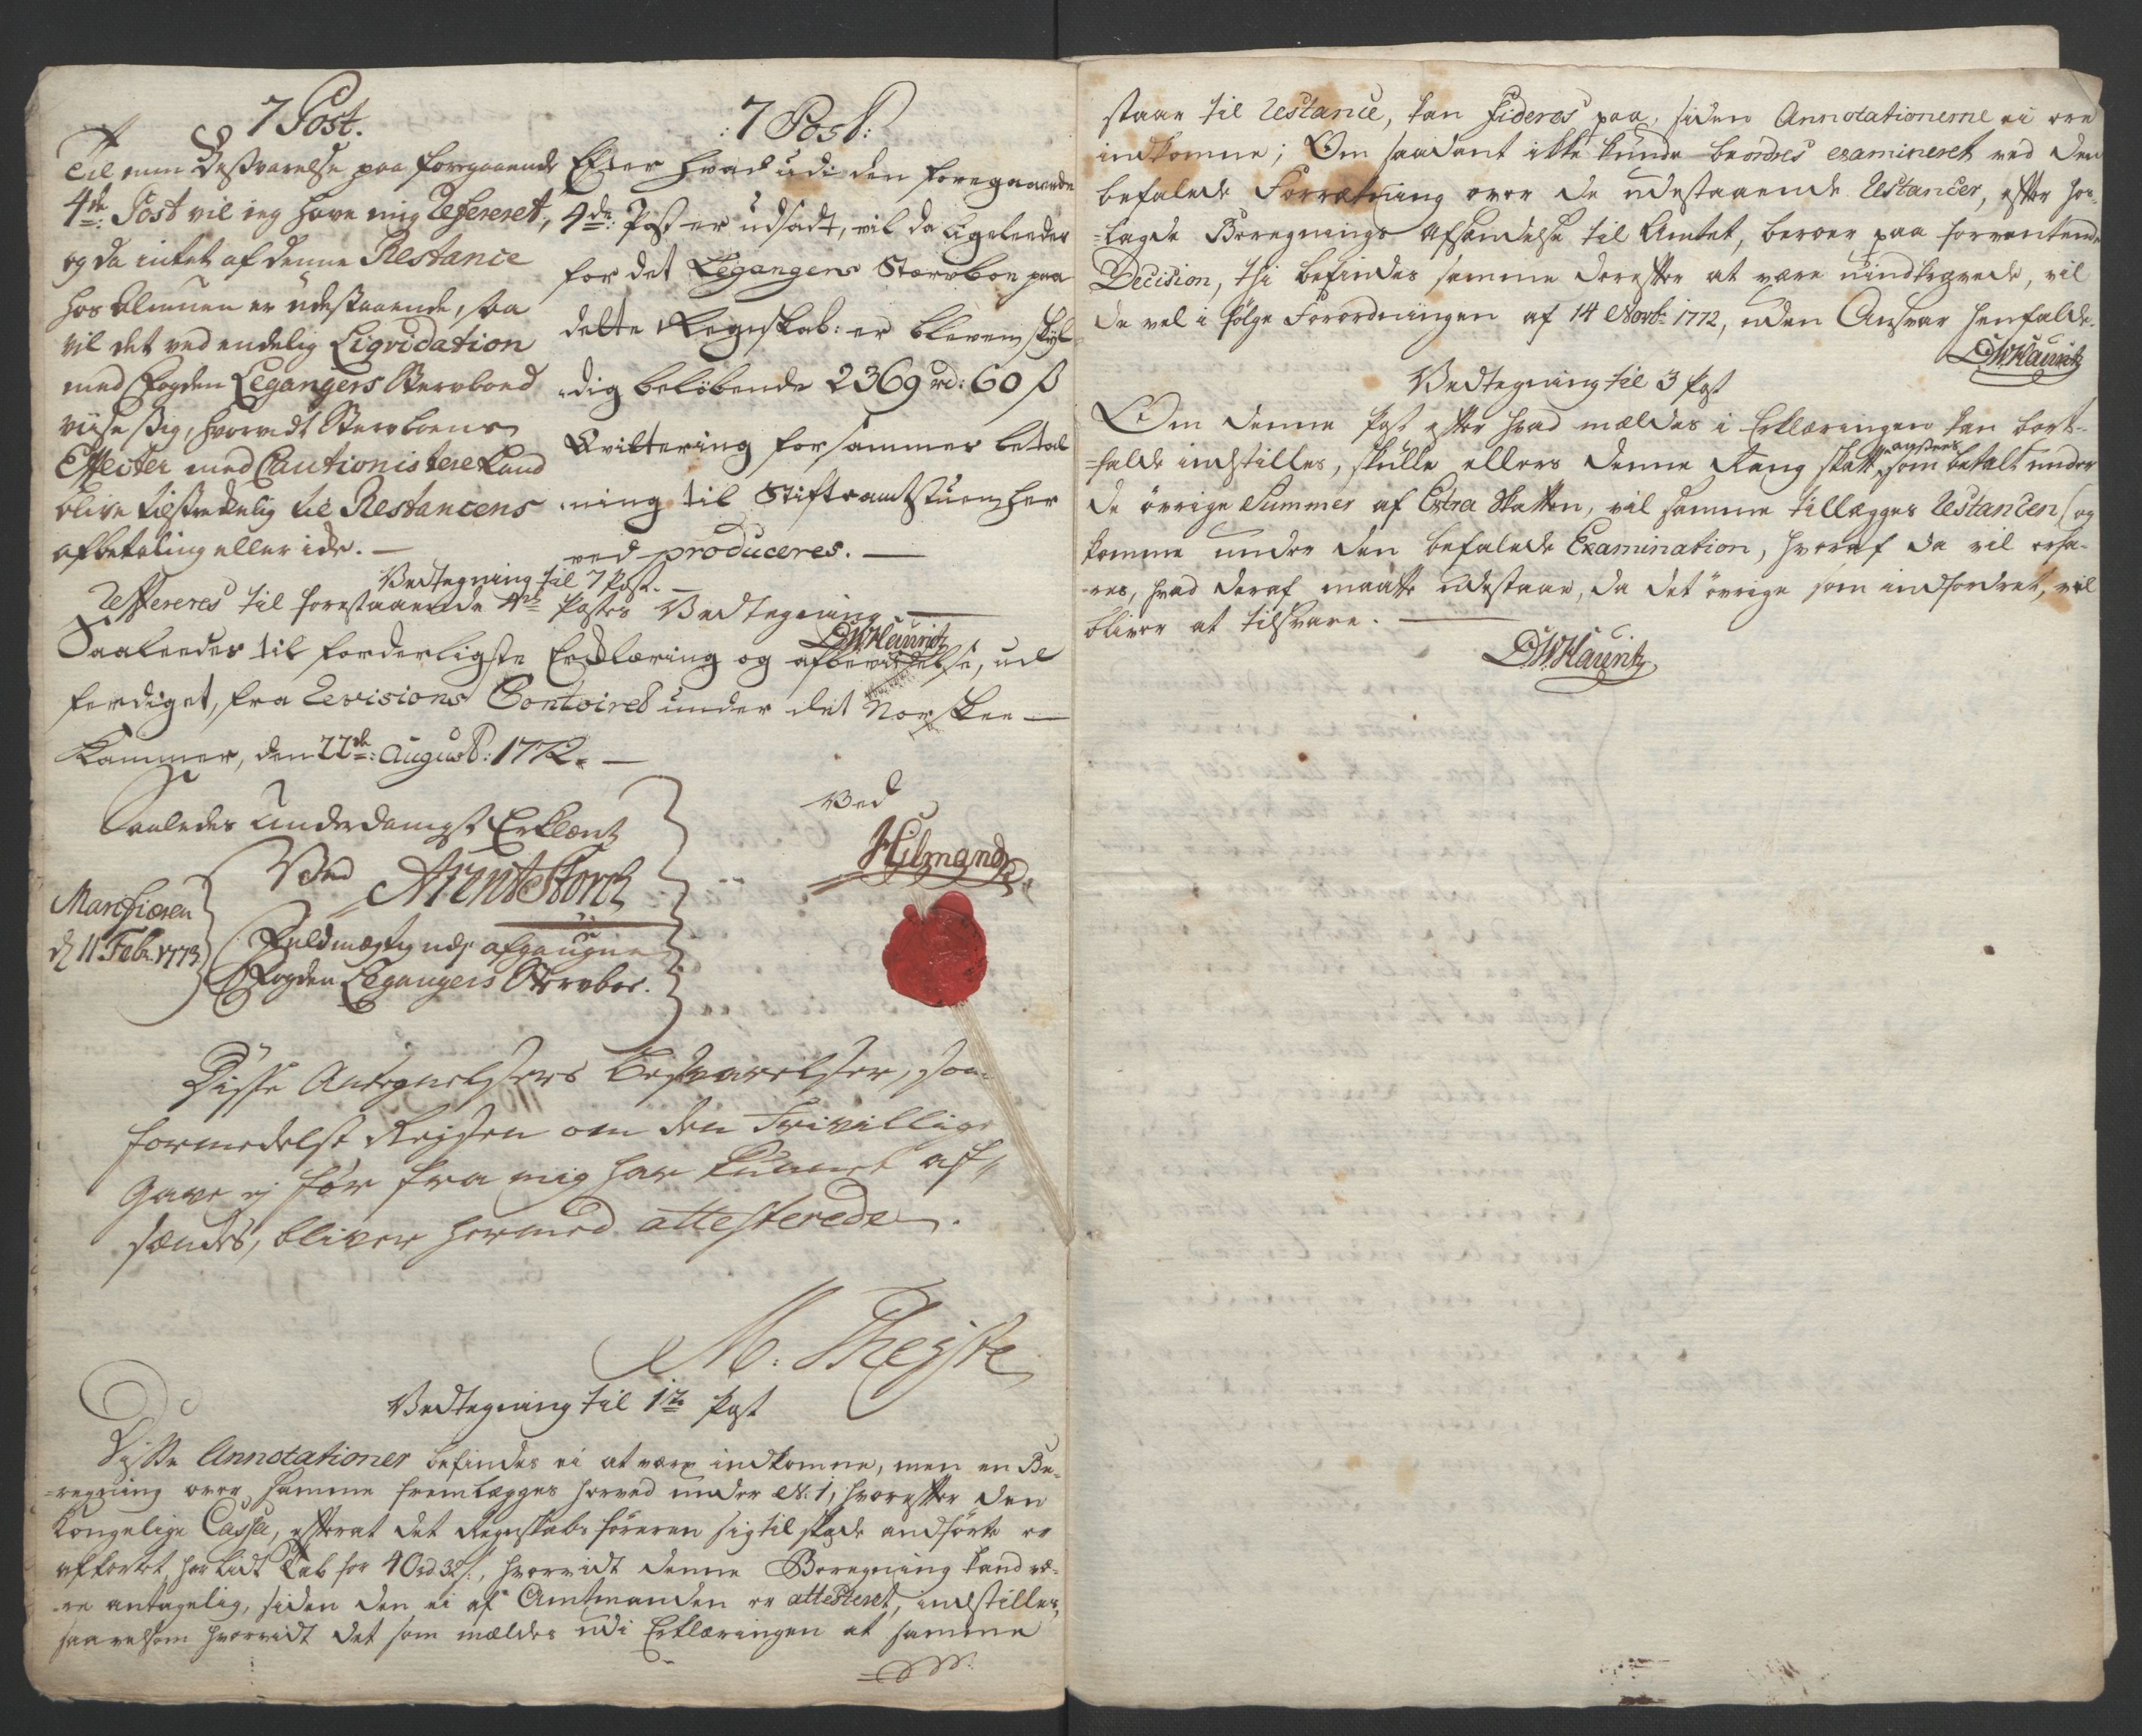 7 Post.
Til min Besvarelse paa foregaaende
4de Post vil jeg have mig Refereret,
og da intet af denne Restance
hos Almuen er udestaaende, saa
vil det ved endelig Liqvidation
med Fogden Legangers Sterboed
viise sig, hvorvidt Sterboens
Effecter med Cautionistere kand
blive tilstrekkelig til Restancens
afbetaling eller ide. —
:7 Post:
Efter hvad udi den foregaaende
4de: Post er udsadt, vil da ligeleedes
for det Legangers Stervboe paa
dette Regnskab: er bleven skyl-
dig beløbende 2369 rd: 60 s
Qvittering for sammes betal
ning til Stiftamtstuen her
ved produceres. —
Vedtegning til 7 Post. —
Refereres til forestaaende 4de Postes Vedtegning. —
CWHauritz
Saaleedes til forderligste Erklæring og afbeviiselse, ud
ferdiget, fra Revisions Contoiret under det Norske —
Kammer, den 22de: August: 1772. —
Ved
Hilmand
Saaledes Underdanigst Erklæret
Ved Arent Storch
Fuldmægtig udj afgangne
Fogden Legangers Stervboe.
Marifiæren
d 11 Feb. 1773
Disse Antegnelsers Besvarelser, som
formedelst Reysen om den Frivillige
Gave ej før fra mig har kunnet af-
sændes, bliver hermed attesterede.
M. Theyste
Vedtegning til 1te Post
Disse Annotationer befindes ei at være indkomne, men en Be-
-regning over samme fremlægges herved under N. 1, hvorefter den
Kongelige Cassa, efterat det Regnskabsføreren sig til skade andførte er
afkortet, har lidt Tab for 40rd 32 s:, hvorvidt denne Beregning kand væ-
-re antagelig, siden den ei af Amtmanden er attesteret, indstilles,
saavelsom hvorvidt det som meldes udi Erklæringen at samme
staar til Restance, kan fideres paa, siden Annotationerne ei ere
indkomne; Om saadant ikke kunde beordres examineret ved den
befalede Forretning over de udestaaende Restancer, efter for-
-lagde Beregnings afsendelse til Amtet, beroer paa forventende
Decision, thi befindes samme derefter at være uindkrævede, vil
de vel i følge Forordningen af 14 Novb: 1772, uden Ansvar henfalde.
CWHauritz
Vedtegning til 3 Post
Om denne Post efter hvad meldes i Erklæringen kan bort-
-falde indstilles, skulle ellers denne Rang skatt som betalt under
de øvrige Summer af Extra Skatten, vil samme tillægges Restancen (og
komme under den befalede Examination, hvoraf da vil erfa-
-res, hvad deraf maatte udestaae, da det øvrige som indfordret, vel
bliver at tilsvare. —
CWHauritz